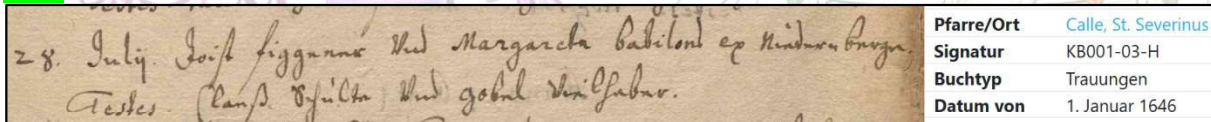 28. Julij. Joist figgener Vnd Margareta Babilons ex Niedernberge.
Testes. Clauß. Schulte Vnd gobel Vielhaber.
Pfarre/Ort Calle, St. Severinus
Signatur KB001-03-H
Buchtyp Trauungen
Datum von 1. Januar 1646